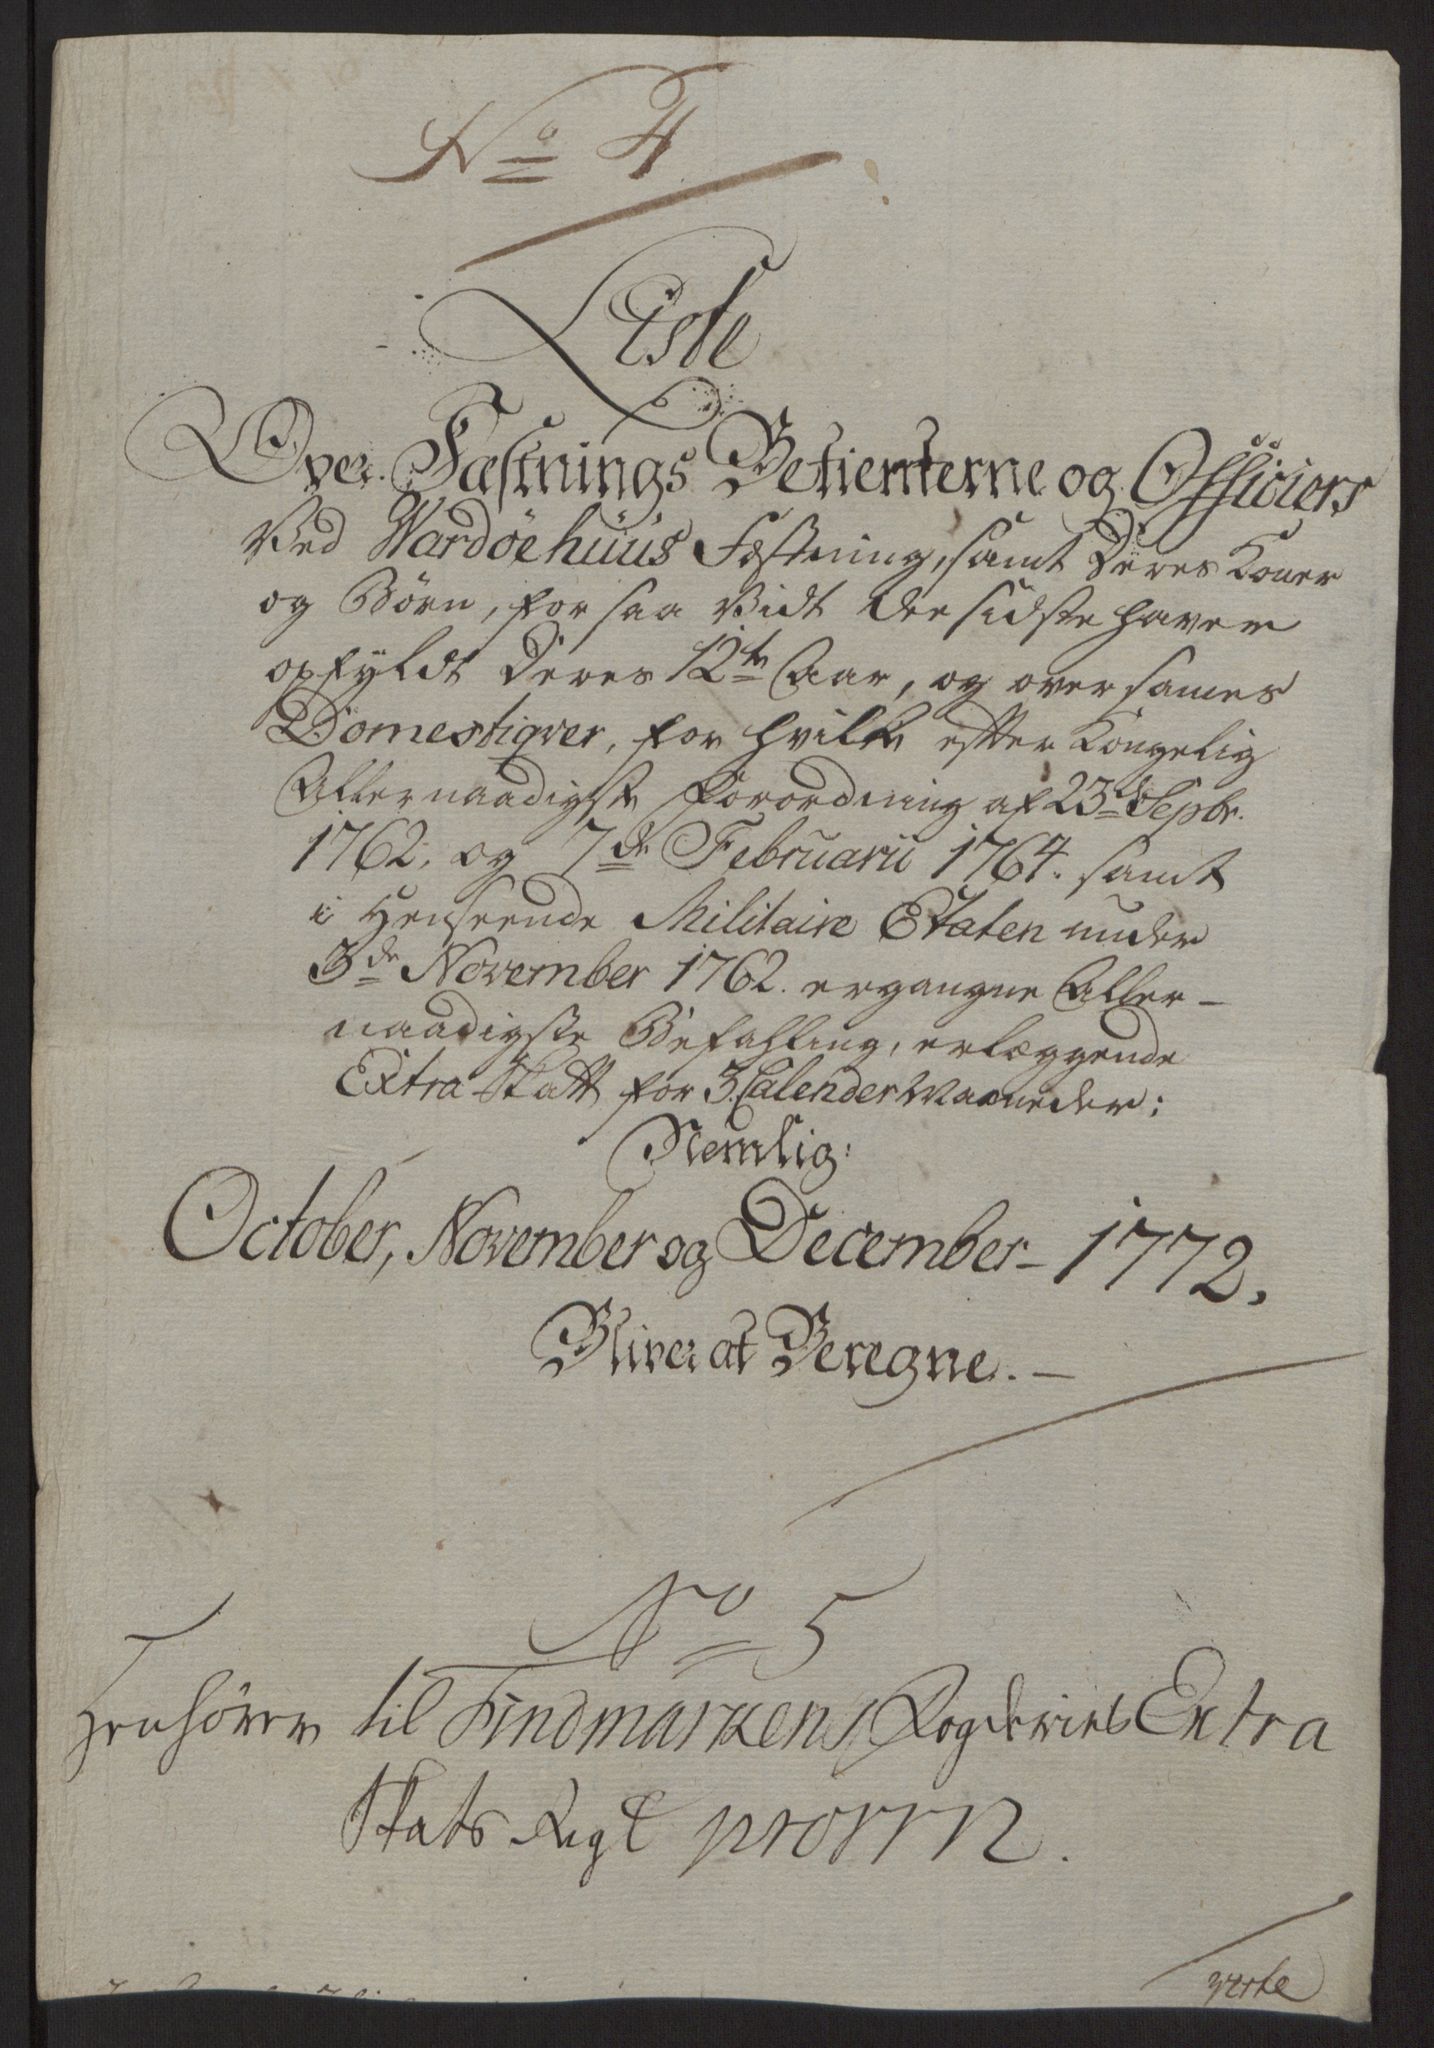 No 4
Liste
Over Fæstnings Betienterne og Officiers
Ved Wardöehuus Fæstning, samt Deres Koner
og Börn, for saa Vidt de sidste haver
opfyldt Deres 12te Aar, og over sames
Domestiqver, for hvilke efter Kongelig
Allernaadigste Forordning af 23de Sepbr.
1762. og 7de Februarii 1764. samt
i Henseende Militaire Etaten under
3de November 1762. ergangne Aller-
naadigste Befahling, erlæggende
Extra Skatt for 3 Calender Maaneder:
Nemlig:
October, November og December 1772.
Bliver at Beregne.
No 5
Henhörer til Findmarkens Fogderies Extra
Skats Regt pro 1772.
verte